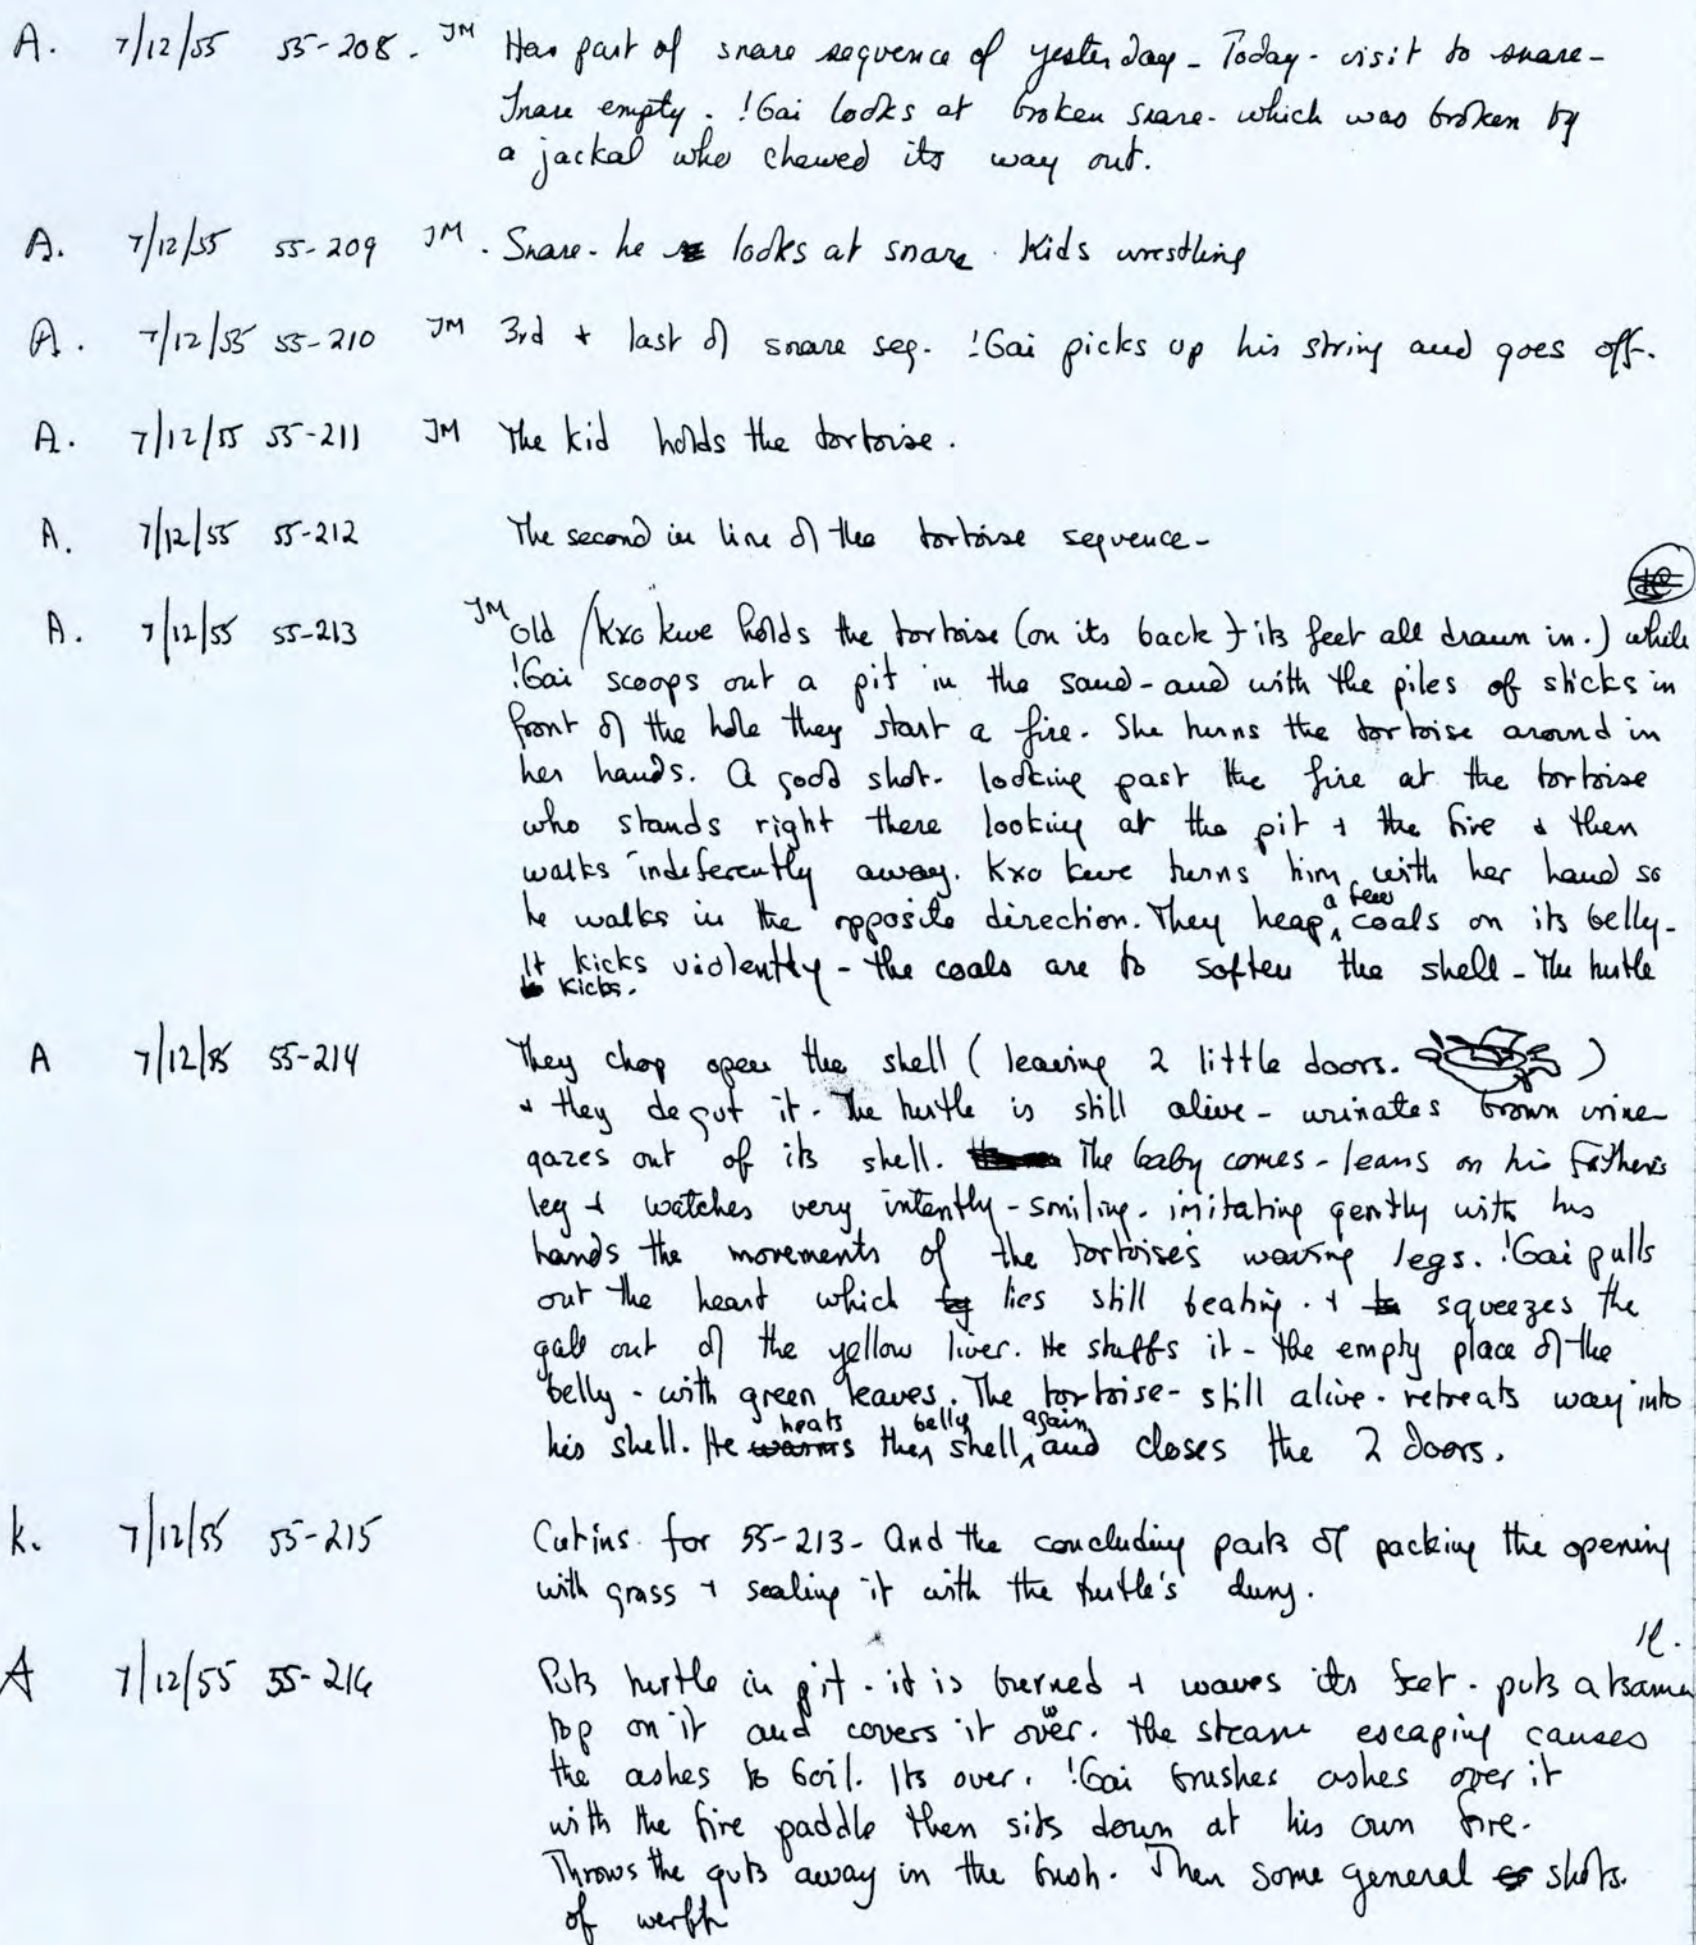 A. 7/12/55 55-208. JM Has part of snare sequence of yesterday - Today - visit to snare -
Snare empty. !Gai looks at broken snare - which was broken by
a jackal who chewed its way out.
A. 7/12/55 55-209 JM. Snare - he looks at snare. Kids wrestling
A. 7/12/55 55-210 JM 3rd + last of snare seq. !Gai picks up his string and goes off.
A. 7/12/55 55-211 JM The kid holds the tortoise.
A. 7/12/55 55-212 The second in line of the tortoise sequence -
A. 7/12/55 55-213 JM Old /Kxo kwe holds the tortoise (on its back + its feet all drawn in.) while
!Gai scoops out a pit in the sand - and with the piles of sticks in
front of the hole they start a fire. She turns the tortoise around in
her hands. A good shot - looking past the fire at the tortoise
who stands right there looking at the pit + the fire + then
walks indeferently away. Kxo kwe turns him with her hand so
he walks in the opposite direction. They heap a few coals on its belly -
It kicks violently - the coals are to soften the shell - The turtle
kicks.
A 7/12/55 55-214 They chop open the shell (leaving 2 little doors. )
+ they degut it - The turtle is still alive - urinates brown urine
gazes out of its shell. The baby comes - leans on his Father's
leg + watches very intently - smiling - imitating gently with his
hands the movements of the tortoise's waving legs. !Gai pulls
out the heart which lies still beating. + squeezes the
gall out of the yellow liver. He stuffs it - the empty place of the
belly - with green leaves. The tortoise - still alive - retreats way into
his shell. He heats then belly shell, again and closes the 2 doors.
K. 7/12/55 55-215 Cut ins for 55-213 - And the concluding parts of packing the opening
with grass + sealing it with the turtle's dung.
A 7/12/55 55-216 Puts turtle in pit - it is burned + waves its feet - puts a tsama
top on it and covers it over. The steam escaping causes
the ashes to boil. Its over. !Gai brushes ashes over it
with the fire paddle then sits down at his own fire.
Throws the guts away in the bush. Then some general shots.
of werft